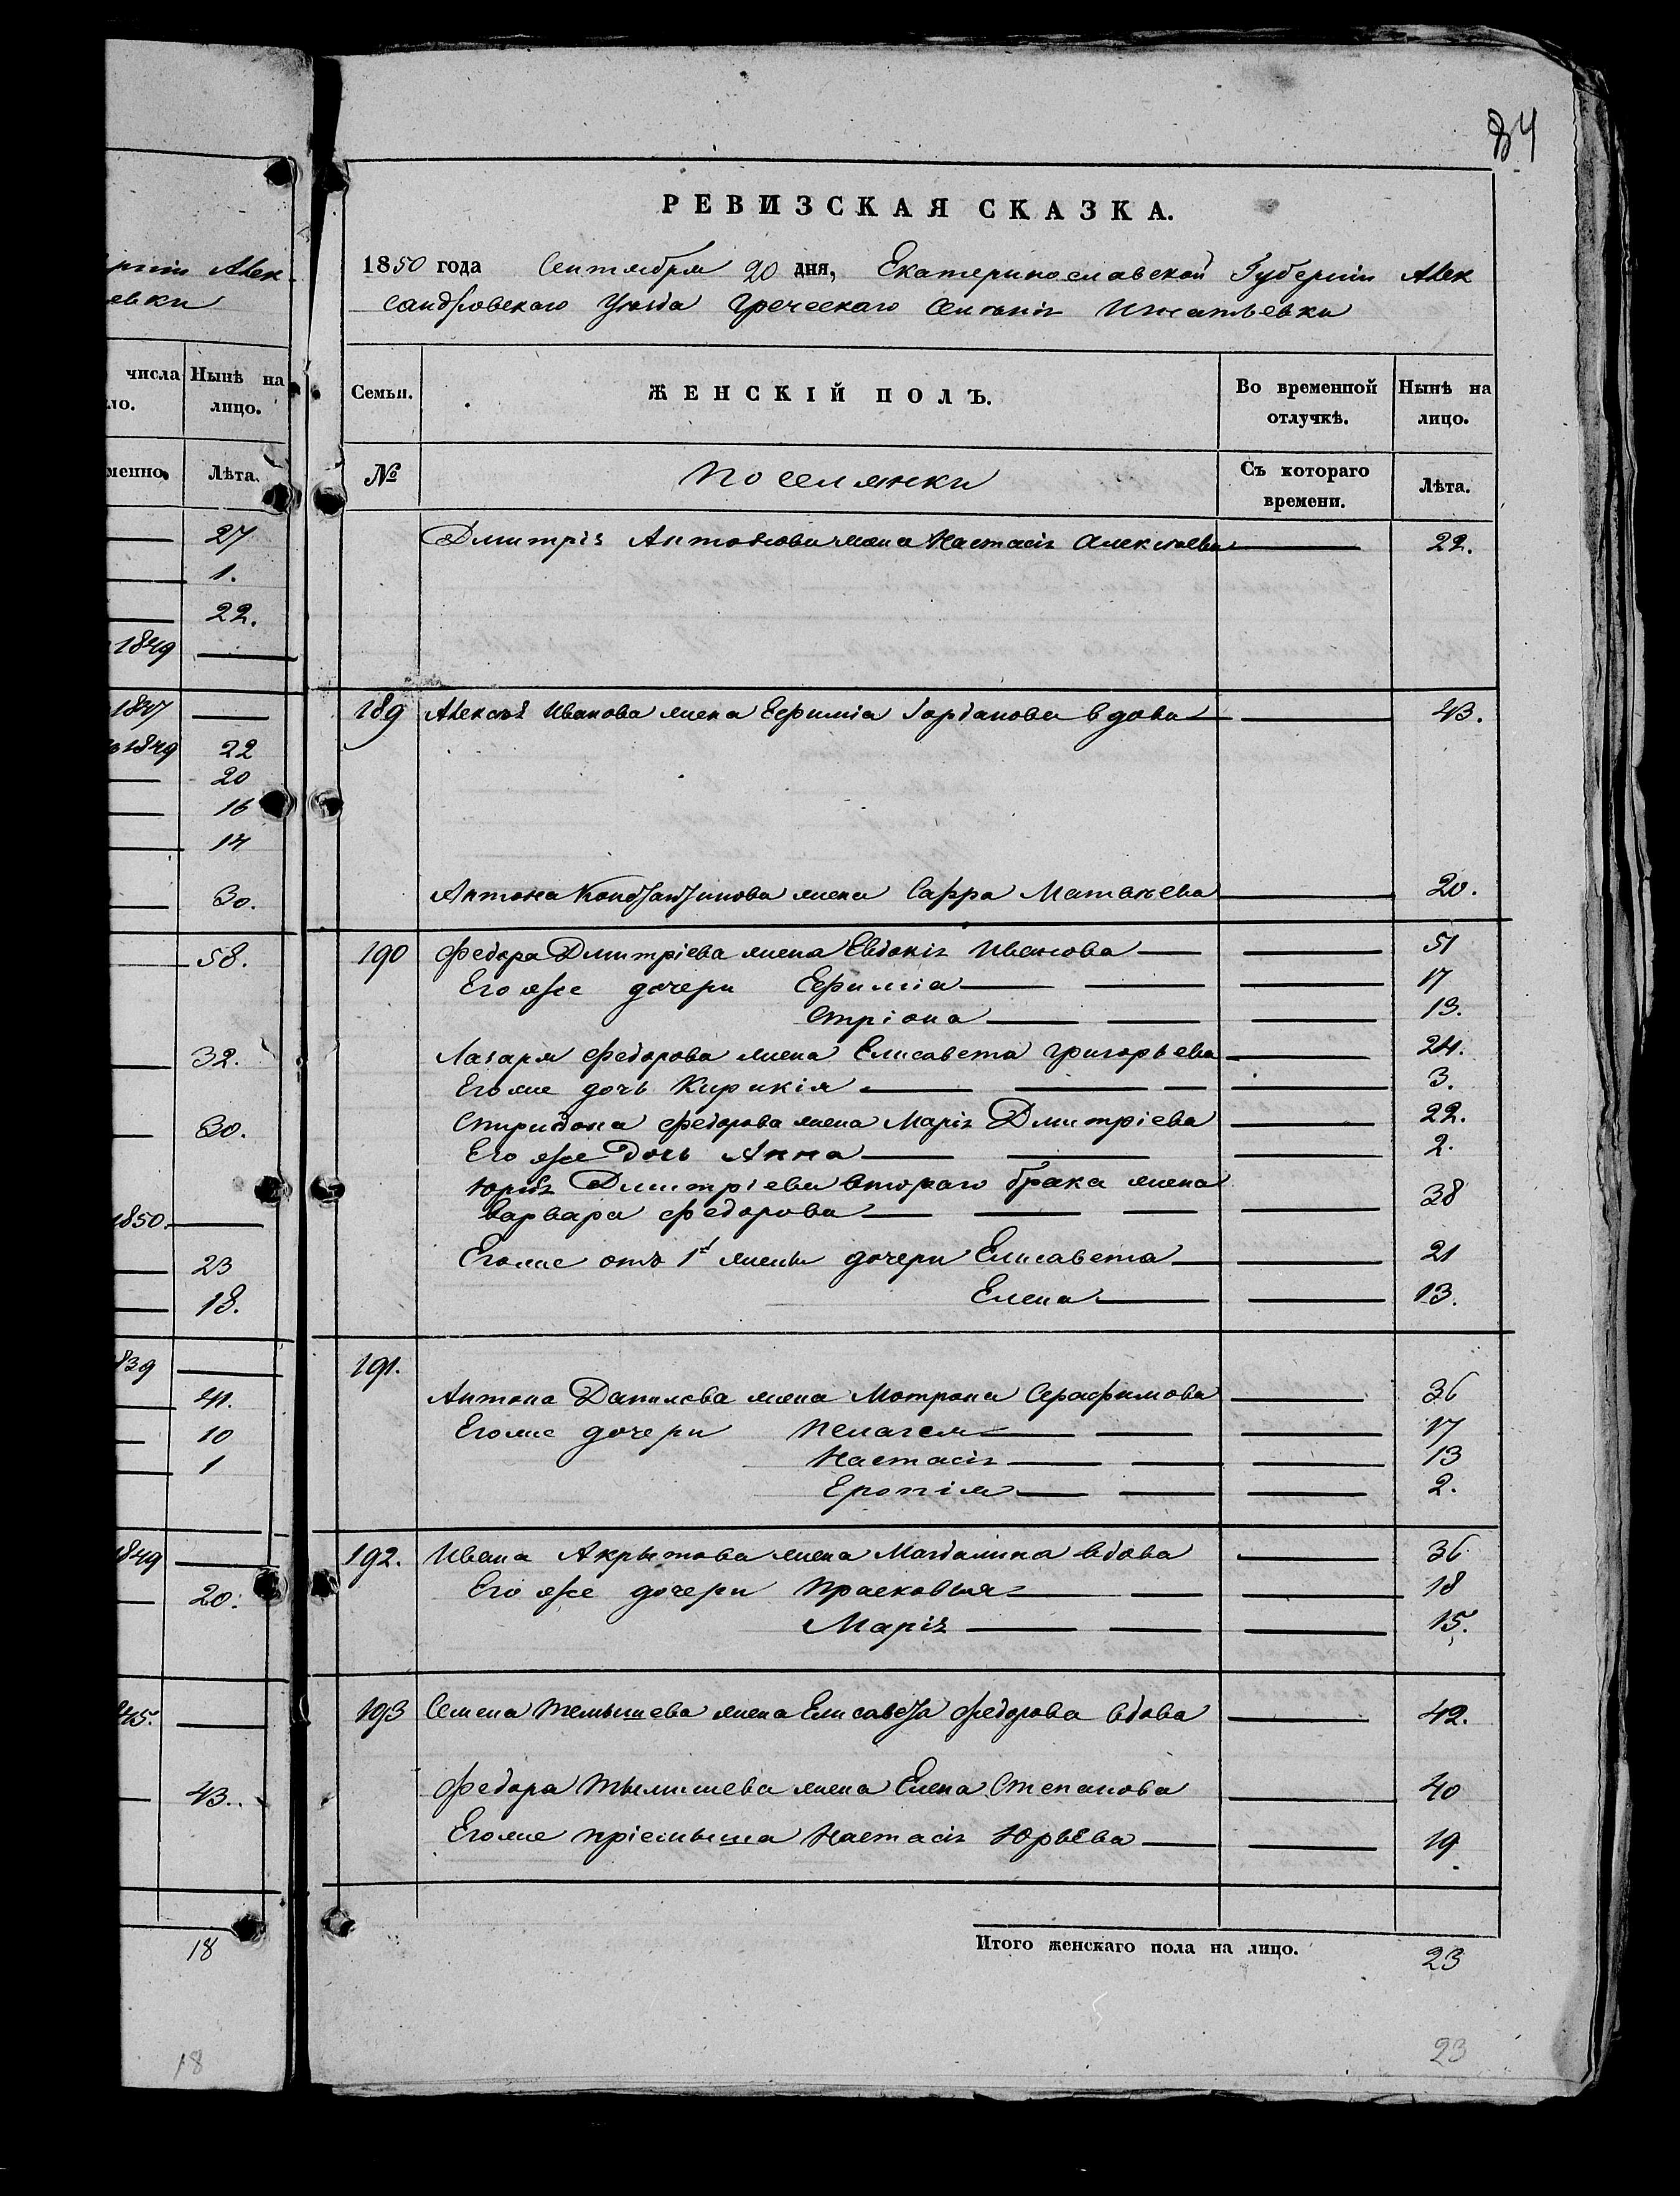 84
РЕВИЗСКАЯ СКАЗКА.
1850 года Сентября 20 дня, Екатеринославской Губерніи Алек
сандровскаго Уѣзда Греческаго Селенія Игнатьевки
Семьи.
ЖЕНСКІЙ ПОЛЪ.
Во временной отлучкѣ.
Нынѣ на лицо.
№
Поселянки
Съ котораго времени.
Лѣта.
Дмитрія Антонова жена Настасія Алексѣева 22.
189 Алексѣя Иванова жена Ефимія Іорданова вдова 43.
Антона Константинова жена Сарра Матвѣева 20.
190 Федора Дмитріева жена Евдокія Иванова 51
Его же дочери Ефимія 17
Стріона 13.
Лазаря Федорова жена Елисавета Григорьева 24.
Его же дочь Кирикія 3.
Спиридона Федорова жена Марія Дмитріева 22.
Его же дочь Анна 2.
Юрія Дмитріева втораго брака жена
Варвара Федорова 38
Его же отъ 1й жены дочери Елисавета 21
Елена 13.
191.
Антона Данилова жена Мотрона Серафимова 36
Его же дочери Пелагея 17
Настасія 13
Еропія 2.
192. Ивана Акрытова жена Магдалина вдова 36
Его же дочери Прасковья 18
Марія 15.
193 Семена Темышева жена Елисавета Федорова вдова 42.
Федора жена Елена Степанова 40
Его же пріемыша Настасія Юрьева 19
Итого женскаго пола на лицо. 23
23
ріи Алек
евки
числа
ло.
Нынѣ на лицо.
менно,
Лѣта.
27
1.
22.
1849
1847
1849 22
20
16
14
30.
58.
32.
30.
1850.
23
18.
839
41.
10
1
1849
20.
45.
43.
18
18